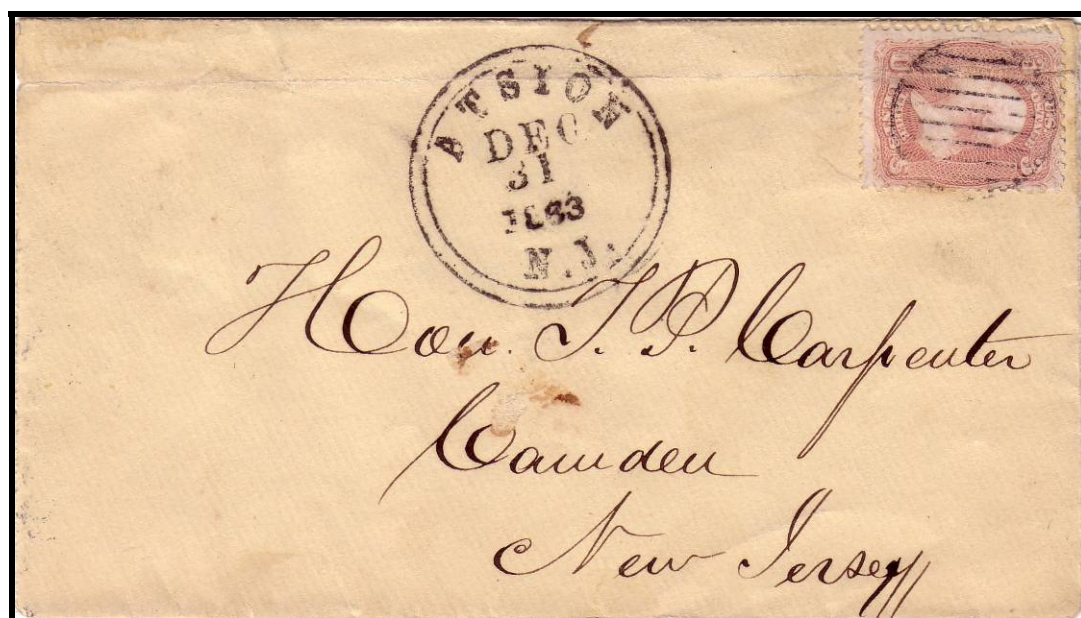 ATSION
DEC
31
1863
N.J.
Hon. T. P. Carpenter
Camden
New Jersey